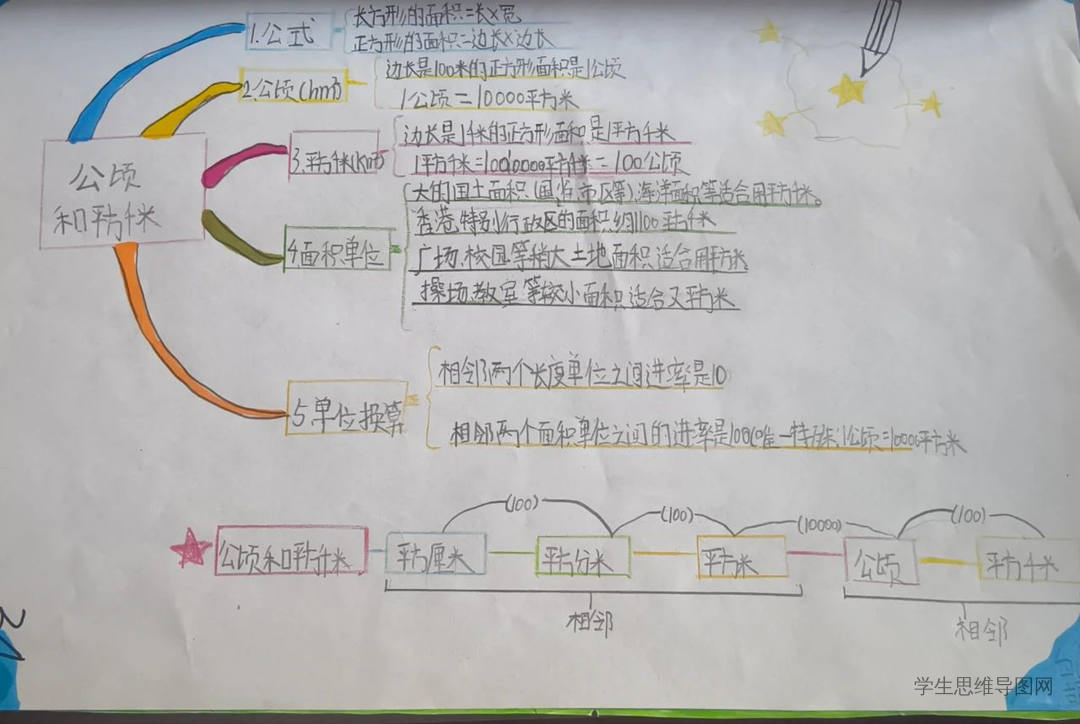 1.公式
长方形的面积=长×宽
正方形的面积=边长×边长
2.公顷(hm²)
边长是100米的正方形面积是1公顷
1公顷=10000平方米
公顷
和平方千米
3.平方千米(km²)
边长是1千米的正方形面积是1平方千米
1平方千米=1000000平方米=100公顷
4.面积单位
大的国土面积(国.省.市.区等).海洋面积等适合用平方千米。
香港特别行政区的面积约1100平方千米
广场.校园等稍大土地面积适合用平方米
操场.教室等较小面积适合又平方米
5.单位换算
相邻两个长度单位之间进率是10
相邻两个面积单位之间的进率是100(唯一特殊:1公顷=10000平方米
(100)
(100)
(10000)
(100)
公顷和平方千米
平方厘米
平方分米
平方米
公顷
平方千米
相邻
相邻
学生思维导图网